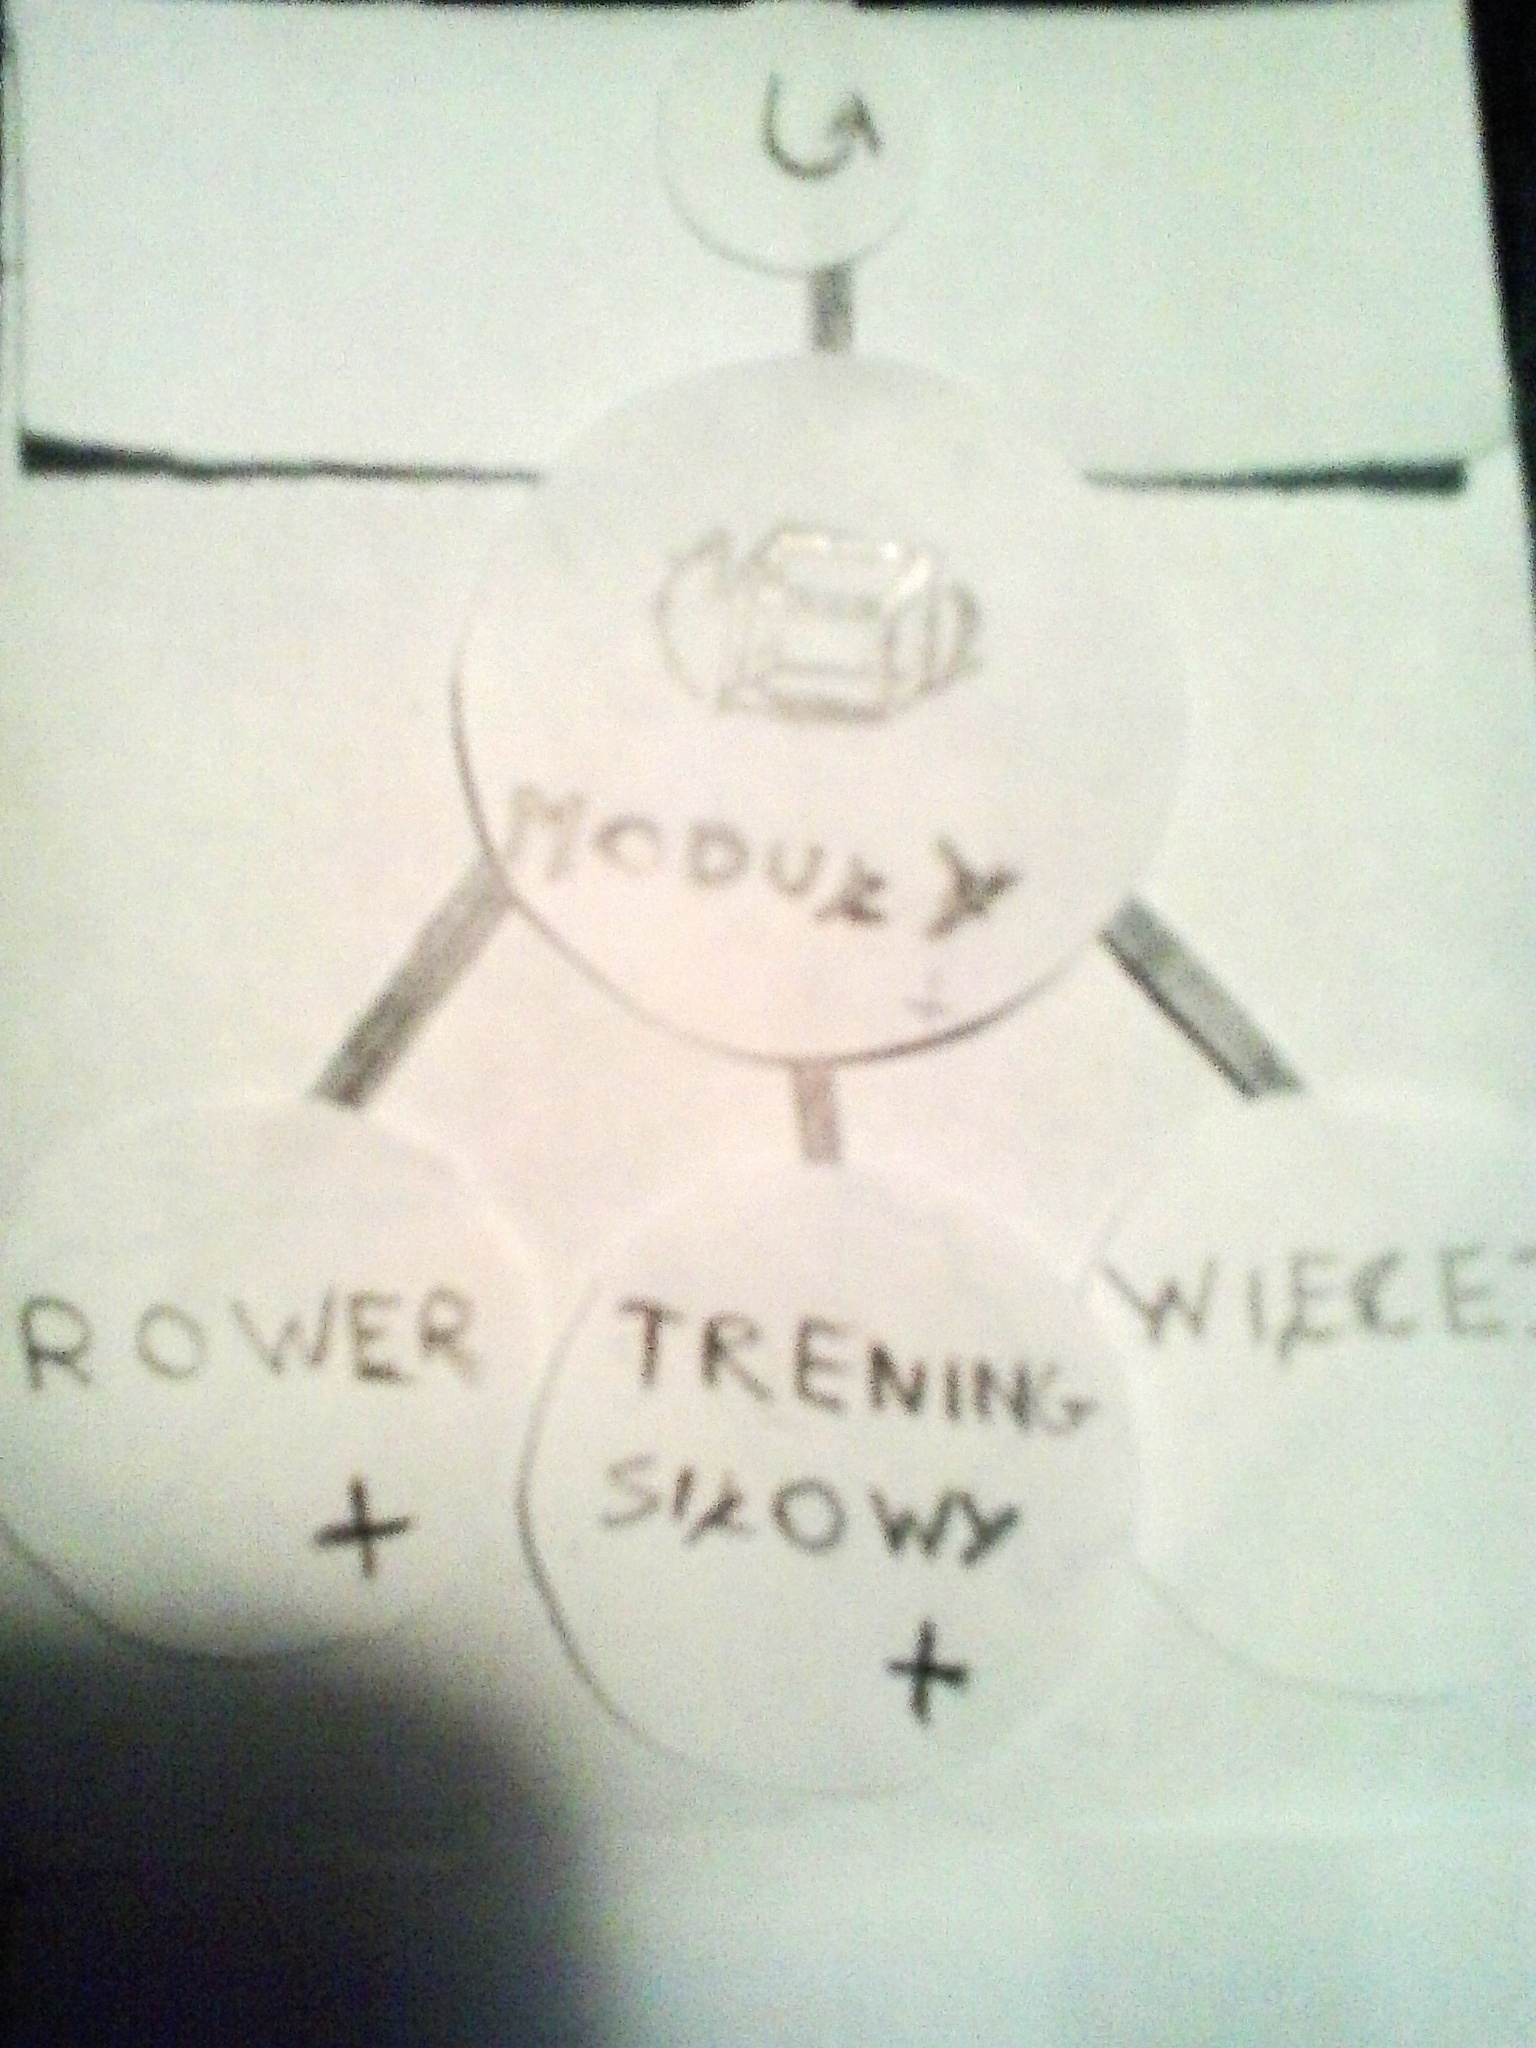 MODUŁY
ROWER
+
TRENING
SIŁOWY
+
WIĘCEJ